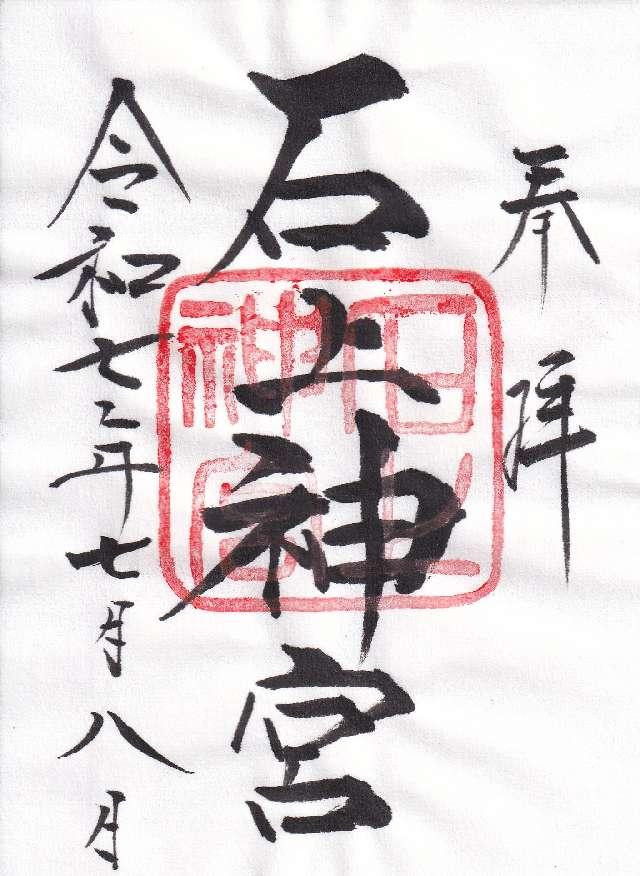 奉拝
石上神宮
令和七年七月八月
石上
神宮